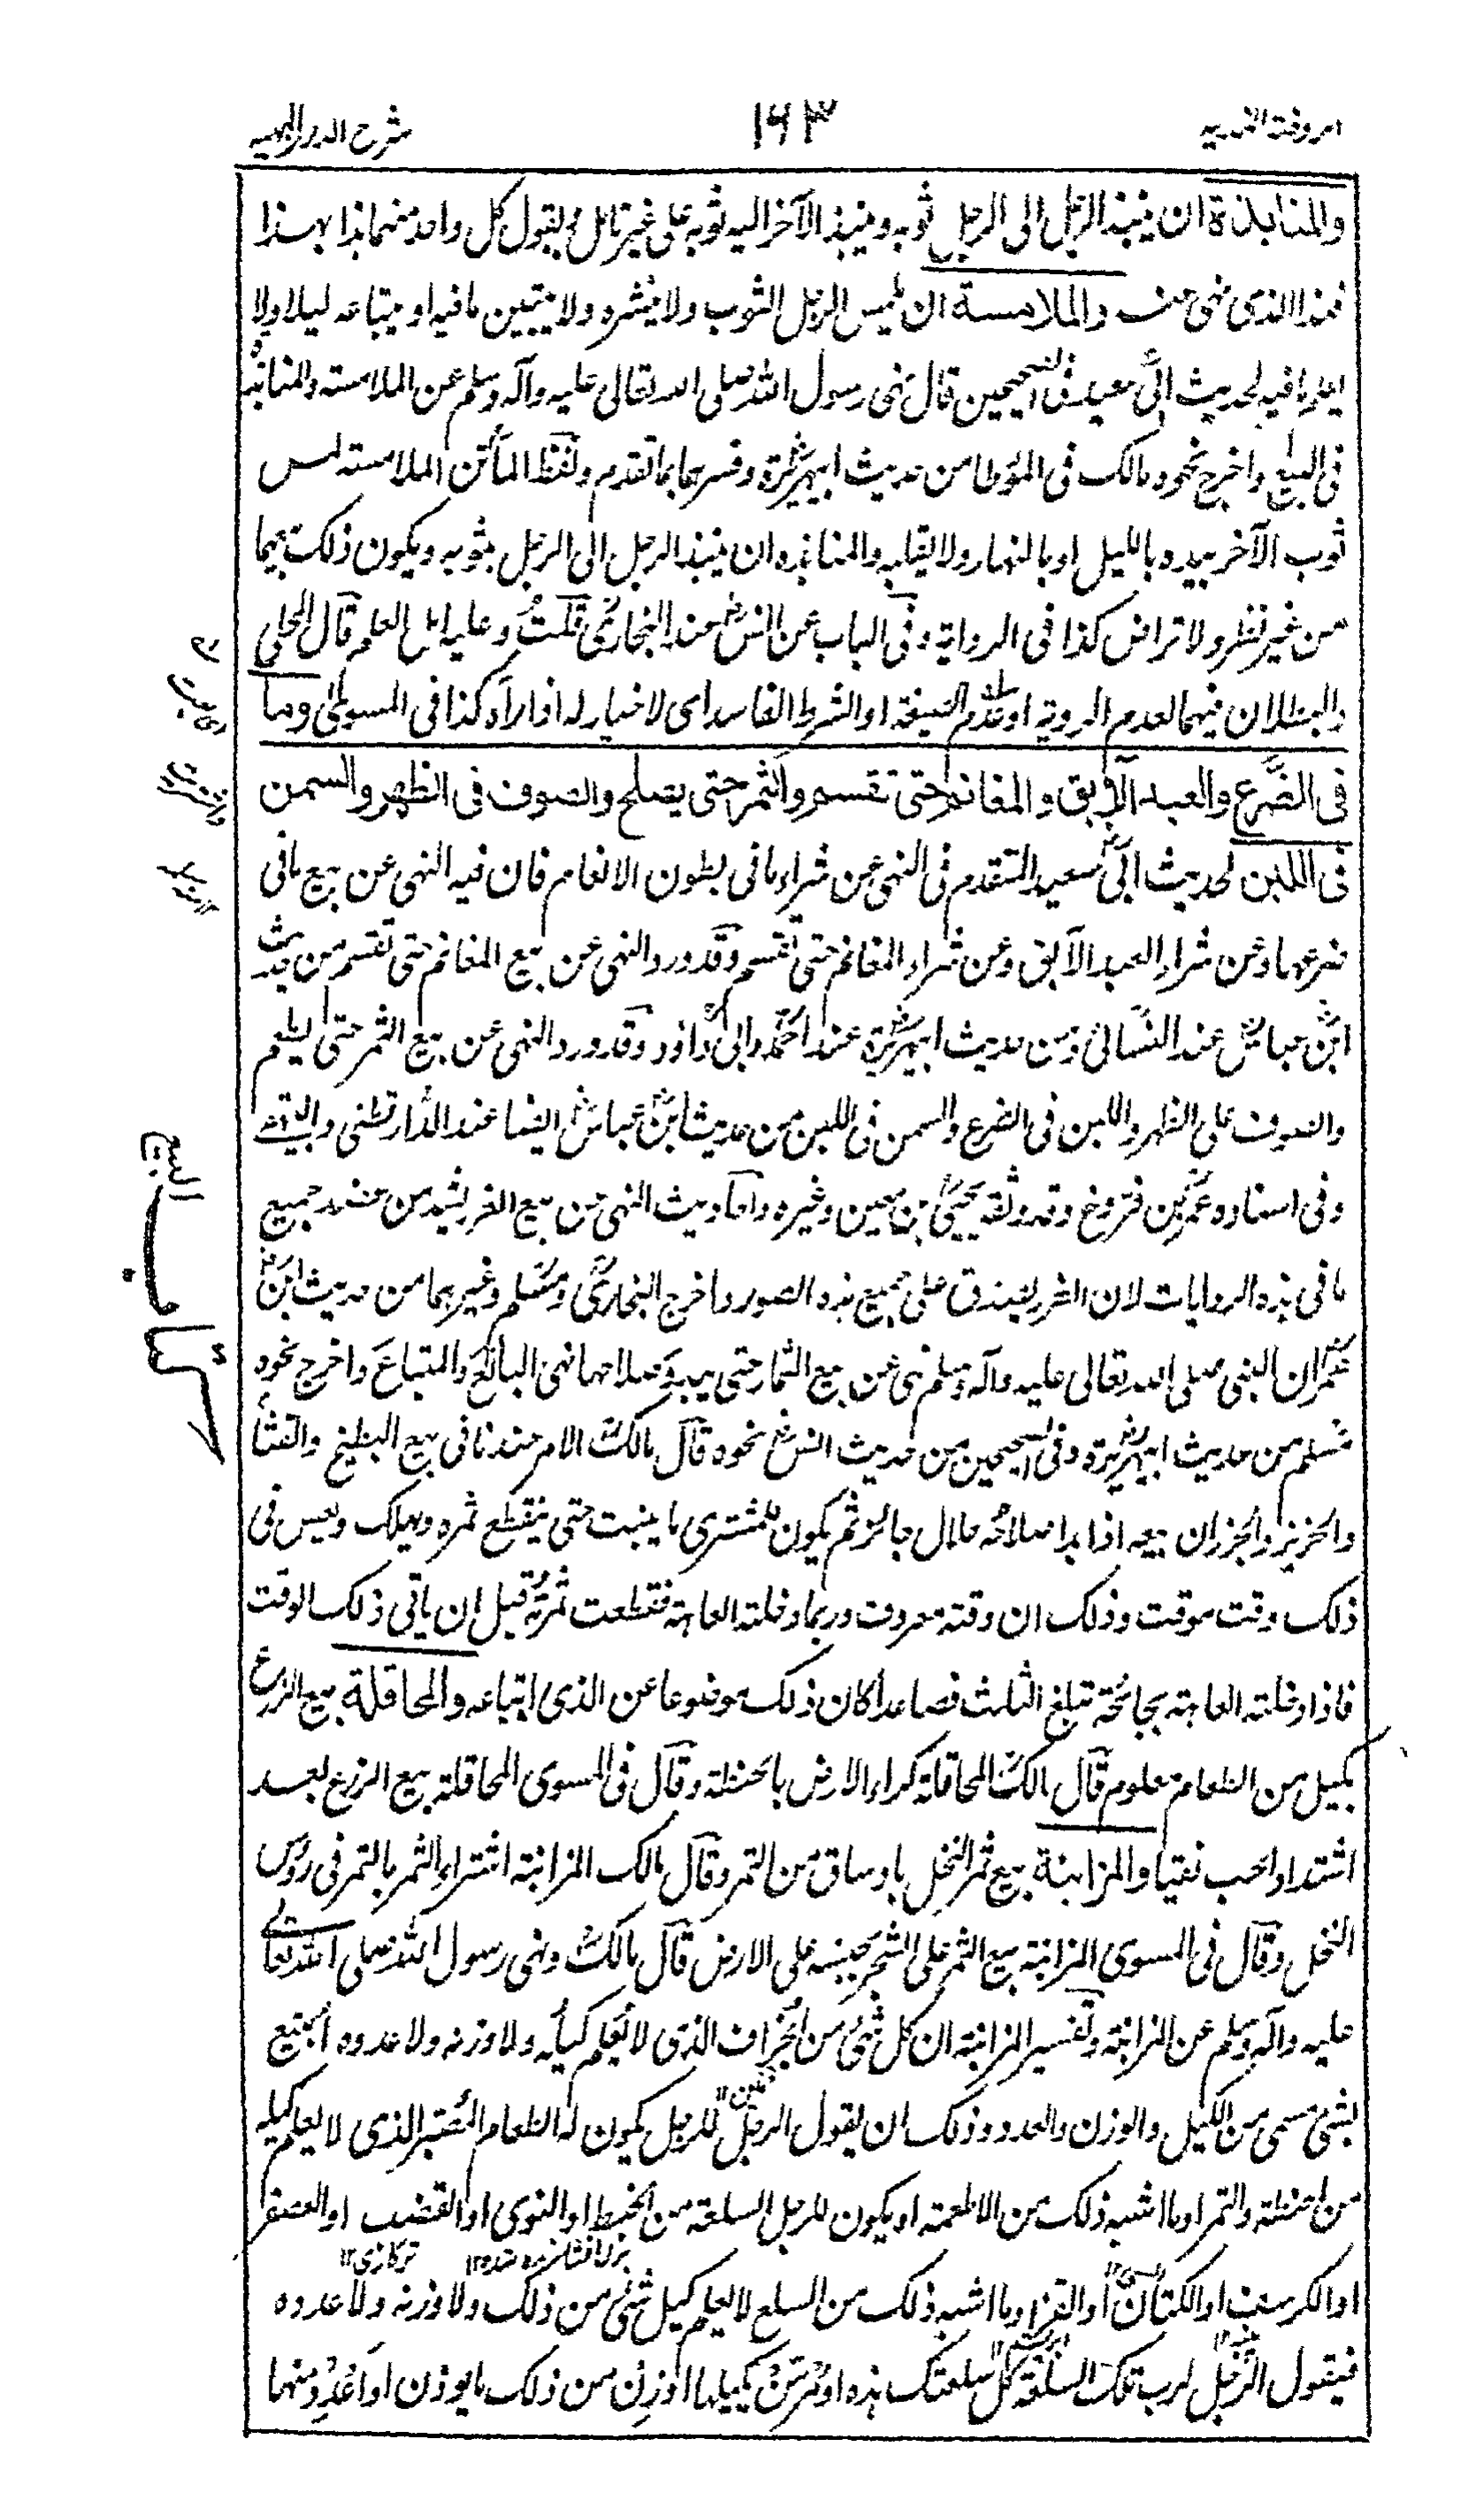 الروضة الندية ١٦٣ شرح الدرر البهية
والمنابذة ان ينبذ الرجل الى الرجل ثوبه وينبذ الآخر اليه ثوبه على غير تامل ويقول كل واحد منهما هذا بهذا
فهذا الذى نهى عنه والملامسة ان يلمس الرجل الثوب ولا ينشره ولا يتبين ما فيه او يبتاعه ليلا ولا
يعلم ما فيه لحديث ابى سعيد فى الصحيحين قال نهى رسول الله صلى الله تعالى عليه وآله وسلم عن الملامسة والمنابذة
فى البيع واخرج نحوه مالك فى المؤطا من حديث ابيهريرة وفسرها بما تقدم ولفظ الماتن الملامسة لمس
ثوب الآخر بيده بالليل او بالنهار ولا يقلبه والمنابذه ان ينبذ الرجل الى الرجل بثوبه ويكون ذلك بيعهما
من غير نظر ولا تراض كذا فى الرواية وفى الباب عن انس عند البخارى قلت وعليه اهل العلم قال المحلى
والبطلان فيهما لعدم الروية او عدم الصيغة او الشرط الفاسد اى لا خيار له اذا رآه كذا فى المسوى وما
فى الضرع والعبد الآبق والمغانم حتى تقسم والثمر حتى يصلح والصوف فى الظهر والسمن
فى اللبن لحديث ابى سعيد المتقدم فى النهى عن شراء ما فى بطون الانعام فان فيه النهى عن بيع ما فى
ضرعها وعن شراء العبد الآبق وعن شراء المغانم حتى تقسم وقد ورد النهى عن بيع المغانم حتى تقسم من حديث
ابن عباس عند النسائى ومن حديث ابيهريرة عند احمد وابى داؤد وقد ورد النهى عن بيع الثمر حتى يطعم
والصوف على الظهر واللبن فى الضرع والسمن فى اللبن من حديث ابن عباس ايضا عند الدارقطنى والبيهقى
وفى اسناده عمر بن فروخ وقد وثقه يحيى بن معين وغيره واحاديث النهى عن بيع الغرر يشد من عضد جميع
ما فى هذه الروايات لان الغرر يصدق على جميع هذه الصور واخرج البخارى ومسلم وغيرهما من حديث ابن
عمر ان النبى صلى الله تعالى عليه وآله وسلم نهى عن بيع الثمار حتى يبدو صلاحها نهى البائع والمبتاع واخرج نحوه
مسلم من حديث ابيهريرة وفى الصحيحين من حديث انس نحوه قال مالك الامر عندنا فى بيع البطيخ والقثأ
والخربز والجزر ان بيعه اذا بدا صلاحه حلال جائز ثم يكون للمشترى ما ينبت حتى ينقطع ثمره ويهلك وليس فى
ذلك وقت موقت وذلك ان وقته معروف وربما دخلته العاهة فقطعت ثمرته قبل ان ياتى ذلك الوقت
فاذا دخلته العاهة بجائحة تبلغ الثلث فصاعدا كان ذلك موضوعا عن الذى ابتاعه والمحاقلة بيع الزرع
بكيل من الطعام معلوم قال مالك المحاقلة كراء الارض بالحنطة وقال فى المسوى المحاقلة بيع الزرع بعد
اشتداد الحب نقيا والمزابنة بيع ثمر النخل باوساق من التمر وقال مالك المزابنة اشتراء الثمر بالتمر فى رؤس
النخل وقال فى المسوى المزابنة بيع الثمر على الشجر بجنسه على الارض قال مالك ونهى رسول الله صلى الله تعالى
عليه وآله وسلم عن المزابنة وتفسير المزابنة ان كل شئ من الجزاف الذى لا يعلم كيله ولا وزنه ولا عدده ابتيع
بشئ مسمى من الكيل والوزن والعدد وذلك ان يقول الرجل للرجل يكون له الطعام المصبر الذى لا يعلم كيله
من الحنطة والتمر او ما اشبه ذلك من الاطعمة او يكون للرجل السلعة من الخبط او النوى او القضب او العصفر
او الكرسف او الكتان او القز او ما اشبه ذلك من السلع لا يعلم كيل شئ من ذلك ولا وزنه ولا عدده
فيقول الرجل لرب تلك السلعة كل سلعتك هذه او مر من يكيلها او زن من ذلك ما يوزن او اعدد منها
كتاب البيع